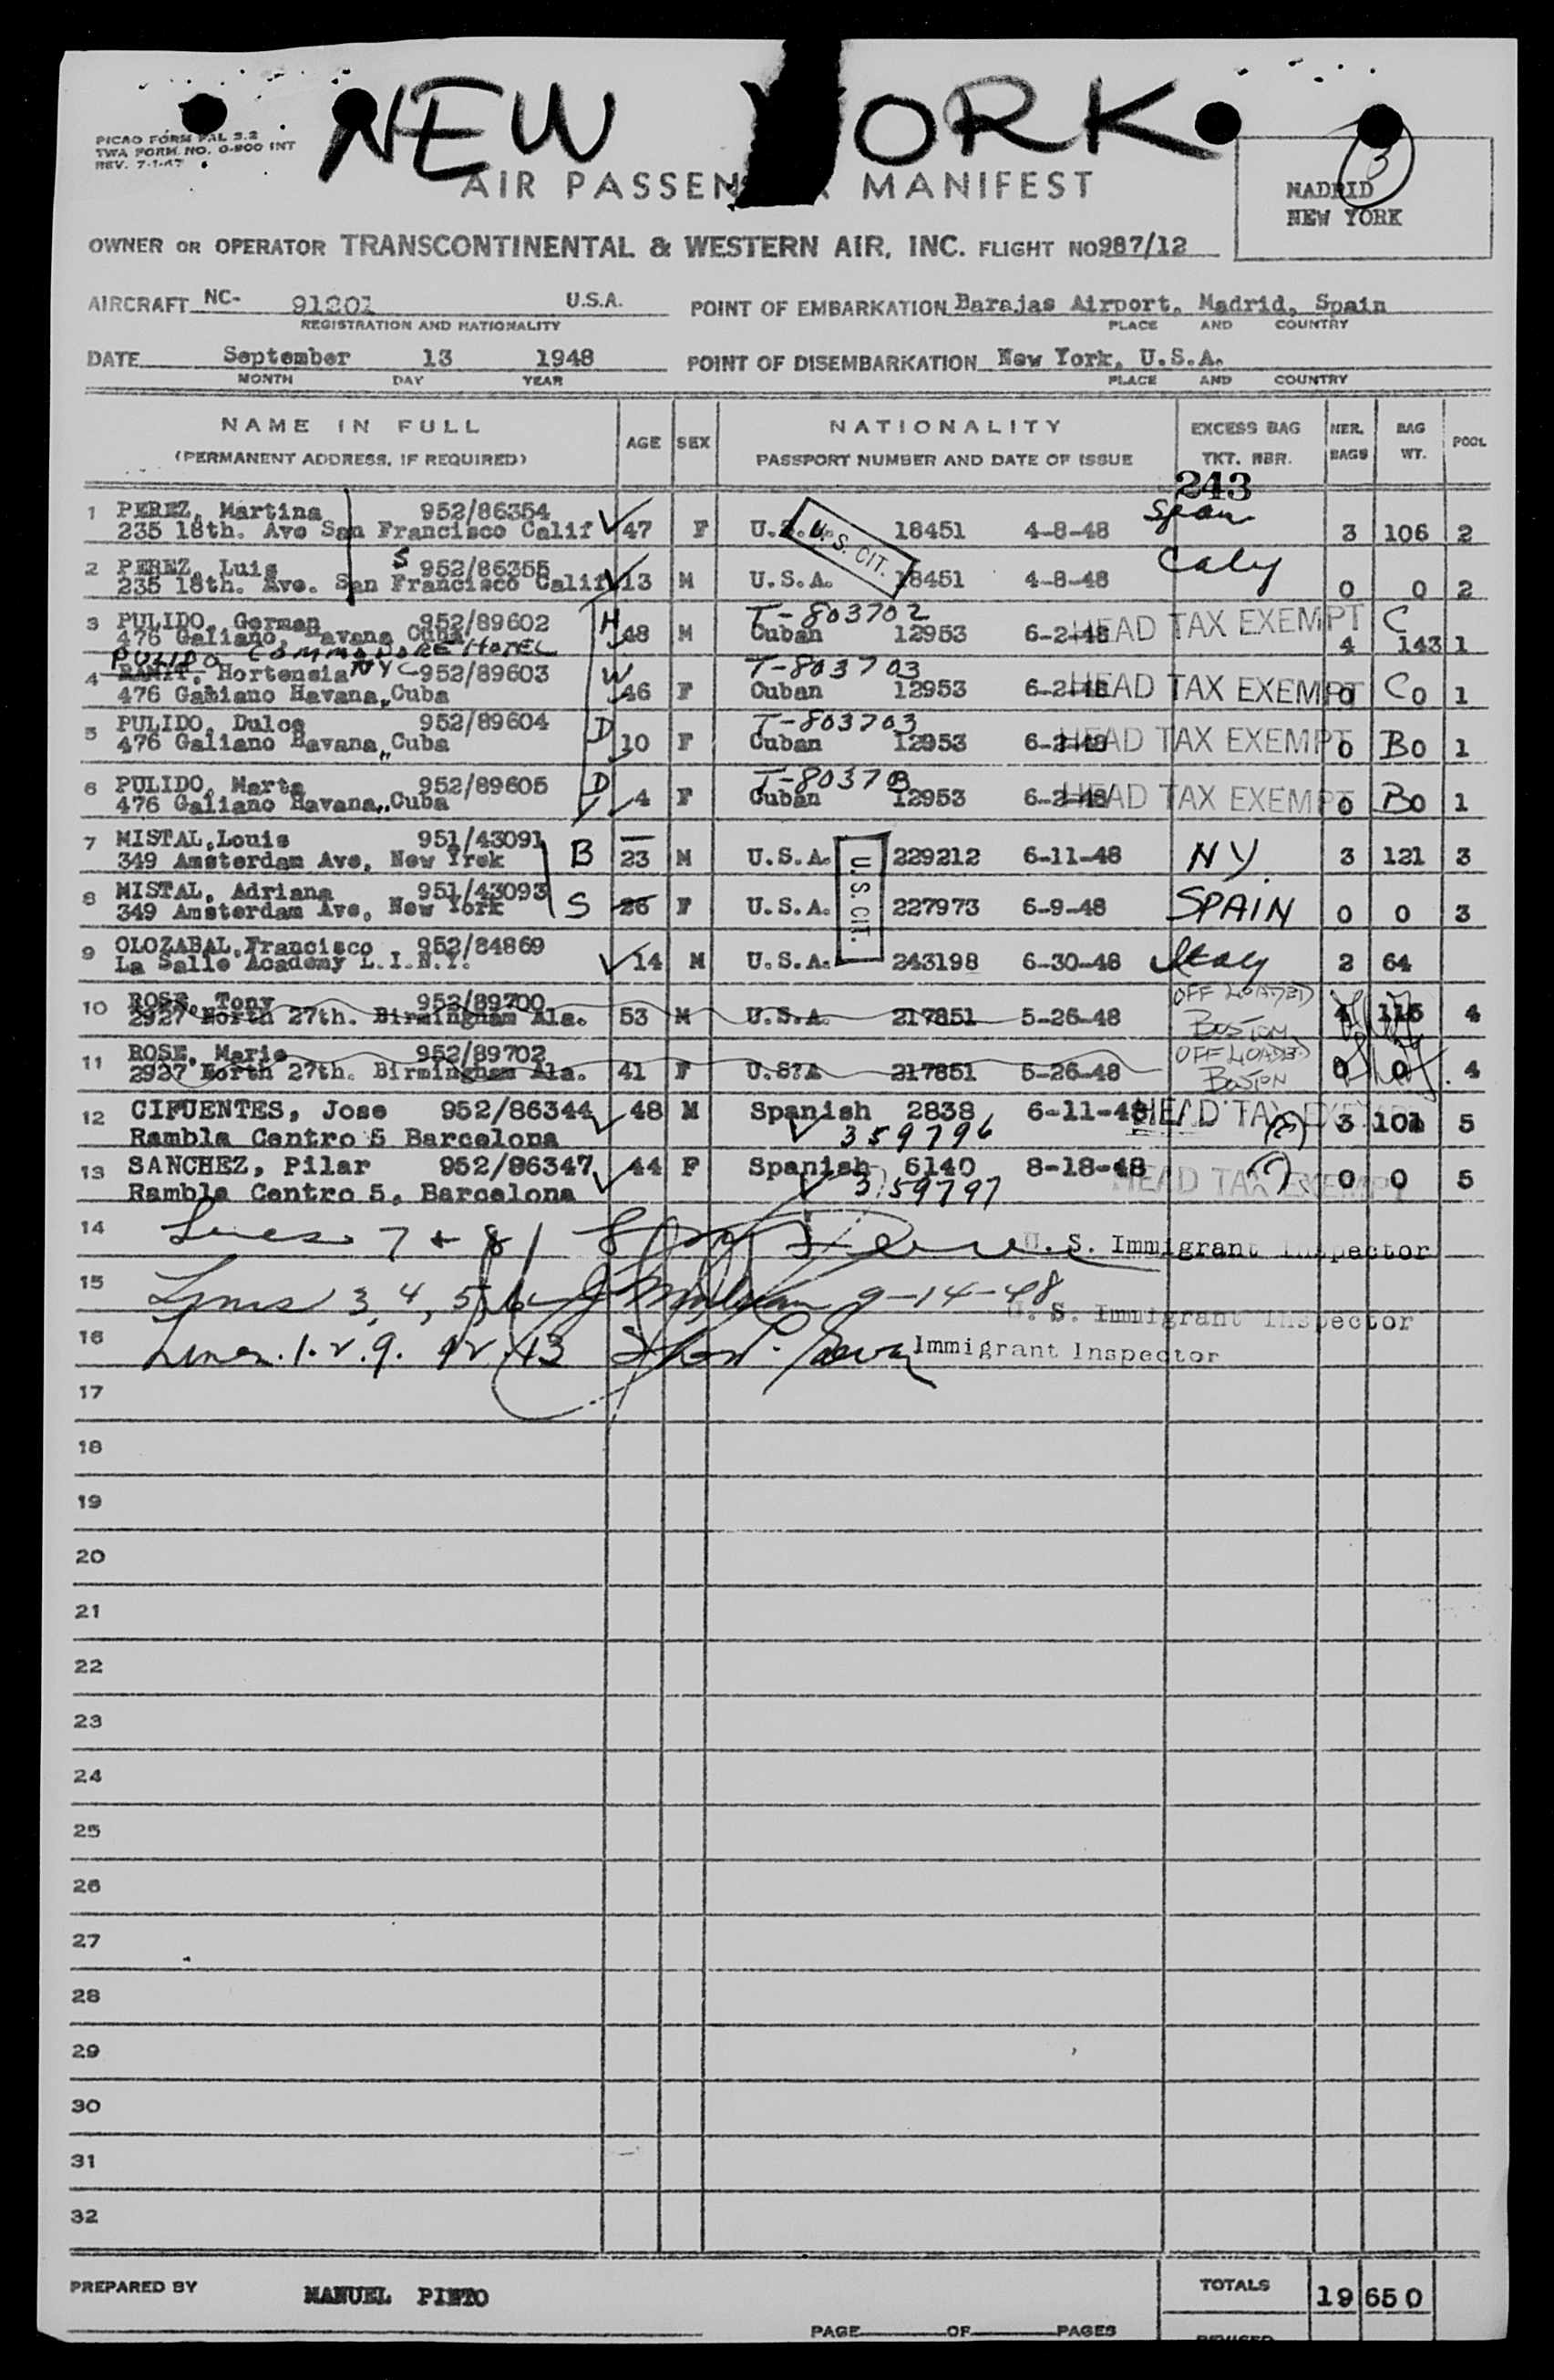 NEW YORK
PICAO FORM PAL 2.2
TWA FORM NO. O-800 INT
REV. 7-1-47
3
AIR PASSEN MANIFEST
MADRID
NEW YORK
OWNER OR OPERATOR TRANSCONTINENTAL & WESTERN AIR, INC. FLIGHT NO 987/12
AIRCRAFT NC- 91201 U.S.A. POINT OF EMBARKATION Barajas Airport, Madrid, Spain
REGISTRATION AND NATIONALITY PLACE AND COUNTRY
DATE September 13 1948 POINT OF DISEMBARKATION New York, U.S.A.
MONTH DAY YEAR PLACE AND COUNTRY
NAME IN FULL AGE SEX NATIONALITY EXCESS BAG NER. BAG POOL
(PERMANENT ADDRESS, IF REQUIRED) PASSPORT NUMBER AND DATE OF ISSUE TKT. NBR. BAGS WT.
243
1 PEREZ, Martina 952/86354 Spain
235 18th. Ave San Francisco Calif 47 F U.S. U.S. CIT. 18451 4-8-48 3 106 2
2 PEREZ, Luis S 952/86355
235 18th. Ave. San Francisco Calif 13 M U.S.A. 18451 4-8-48 0 0 2
3 PULIDO, German 952/89602 H T-803702 HEAD TAX EXEMPT C
476 Galiano, Havana Cuba 48 M Cuban 12953 6-2-48 4 143 1
PULIDO COMMADORE HOTEL
4 RAMIT, Hortensia NYC 952/89603 W T-803703 HEAD TAX EXEMPT C
476 Gabiano Havana,,Cuba 46 F Cuban 12953 6-2-48 0 0 1
5 PULIDO, Dulce 952/89604 D T-803703 HEAD TAX EXEMPT B
476 Galiano Havana,,Cuba 10 F Cuban 12953 6-2-48 0 0 1
6 PULIDO, Marta 952/89605 D T-80370B HEAD TAX EXEMPT B
476 Galiano Havana,,Cuba 4 F Cuban 12953 6-2-48 0 0 1
7 MISTAL,Louis 951/43091 B
349 Amsterdam Ave, New Yrok 23 M U.S.A. U.S. CIT. 229212 6-11-48 NY. 3 121 3
8 MISTAL, Adriana 951/43093 S
349 Amsterdam Ave, New York 26 F U.S.A. 227973 6-9-48 SPAIN 0 0 3
9 OLOZABAL,Francisco 952/84869
La Salle Academy L.I.N.Y. 14 M U.S.A. 243198 6-30-48 2 64
10 ROSE, Tony 952/89700 OFF LOADED
2927 North 27th. Birmingham Ala. 53 M U.S.A. 217851 5-26-48 BOSTON 4 115 4
11 ROSE, Marie 952/89702 OFF LOADED
2927 North 27th. Birmingham Ala. 41 F U.S?A 217851 5-26-48 BOSTON 0 0 4
12 CIFUENTES, Jose 952/86344 48 M Spanish 2838 6-11-48 HEAD TAX 3 101 5
Rambla Centro 5 Barcelona 359796
13 SANCHEZ, Pilar 952/86347 44 F Spanish 6140 8-18-48 HEAD TAX EXEMPT 0 0 5
Rambla Centro 5, Barcelona 359797
14 Lines 7 + 8 U. S. Immigrant Inspector
15 Lines 3, 4, 5, 6 9-14-48 U. S. Immigrant Inspector
16 Lines. 1. 2. 9. 12. 13 Immigrant Inspector
17
18
19
20
21
22
23
24
25
26
27
28
29
30
31
32
PREPARED BY MANUEL PINTO TOTALS 19 650
PAGE OF PAGES REVISED